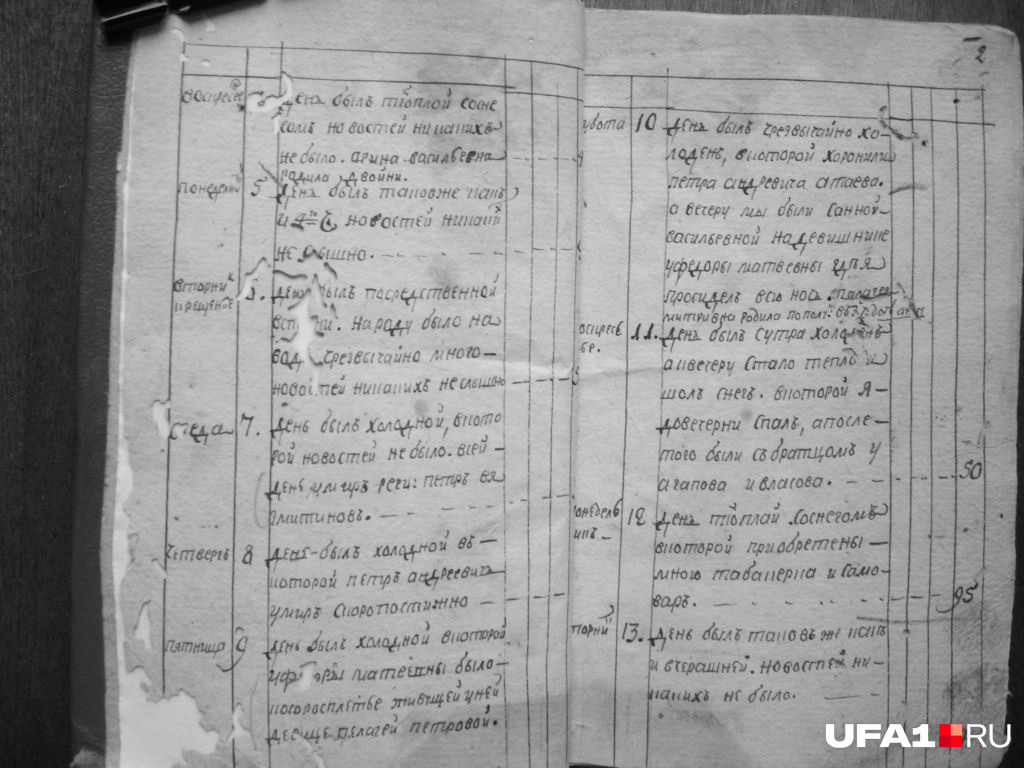 Воскресе
День былъ тіоплой сосне
гомъ новостей ниꙗкихъ
не было. Арина васильевна
радила двойни.
понеделни 5
День былъ таковже какъ
и 4го, новостей никаки
не слышно.
вторни
крещение 6.
День былъ посредственной
Народу было на
вод чрезвычайно много
новостей никакихъ неслышно
Среда 7.
День былъ холодной, вкото
рой новостей не было. всей
день
четвергъ 8
День былъ холодной въ
которой петръ андреевичь
умиръ скоропостижно
пятница 9
День былъ холодной вкоторой
уфедоры матвевны было
живущей уней
девице пелагей петровой.
2
субота 10
День былъ чрезвычайно хо-
лоденъ, вкоторой хоронили
петра андревича атаева.
а вечеру мы были санной
васильевной надевишнике
уфедоры матвевны где я
просидел всю ноч. палагея
митривна родила
воскресе
ье. 11.
День былъ сутра холоденъ
аквечеру стало тепле и
шолъ снегъ. вкоторой я-
довечерни спалъ, апосле-
того были събратцомъ у
агапова ивласова. 50
понедель
никъ 12
День тіоплай соснегомъ
вкоторой приобретены
много табакерка и само-
варъ. 95
вторни 13.
День былъ таковъ же какъ
и вчерашней. новостей ни-
какихъ не было.
UFA1.RU